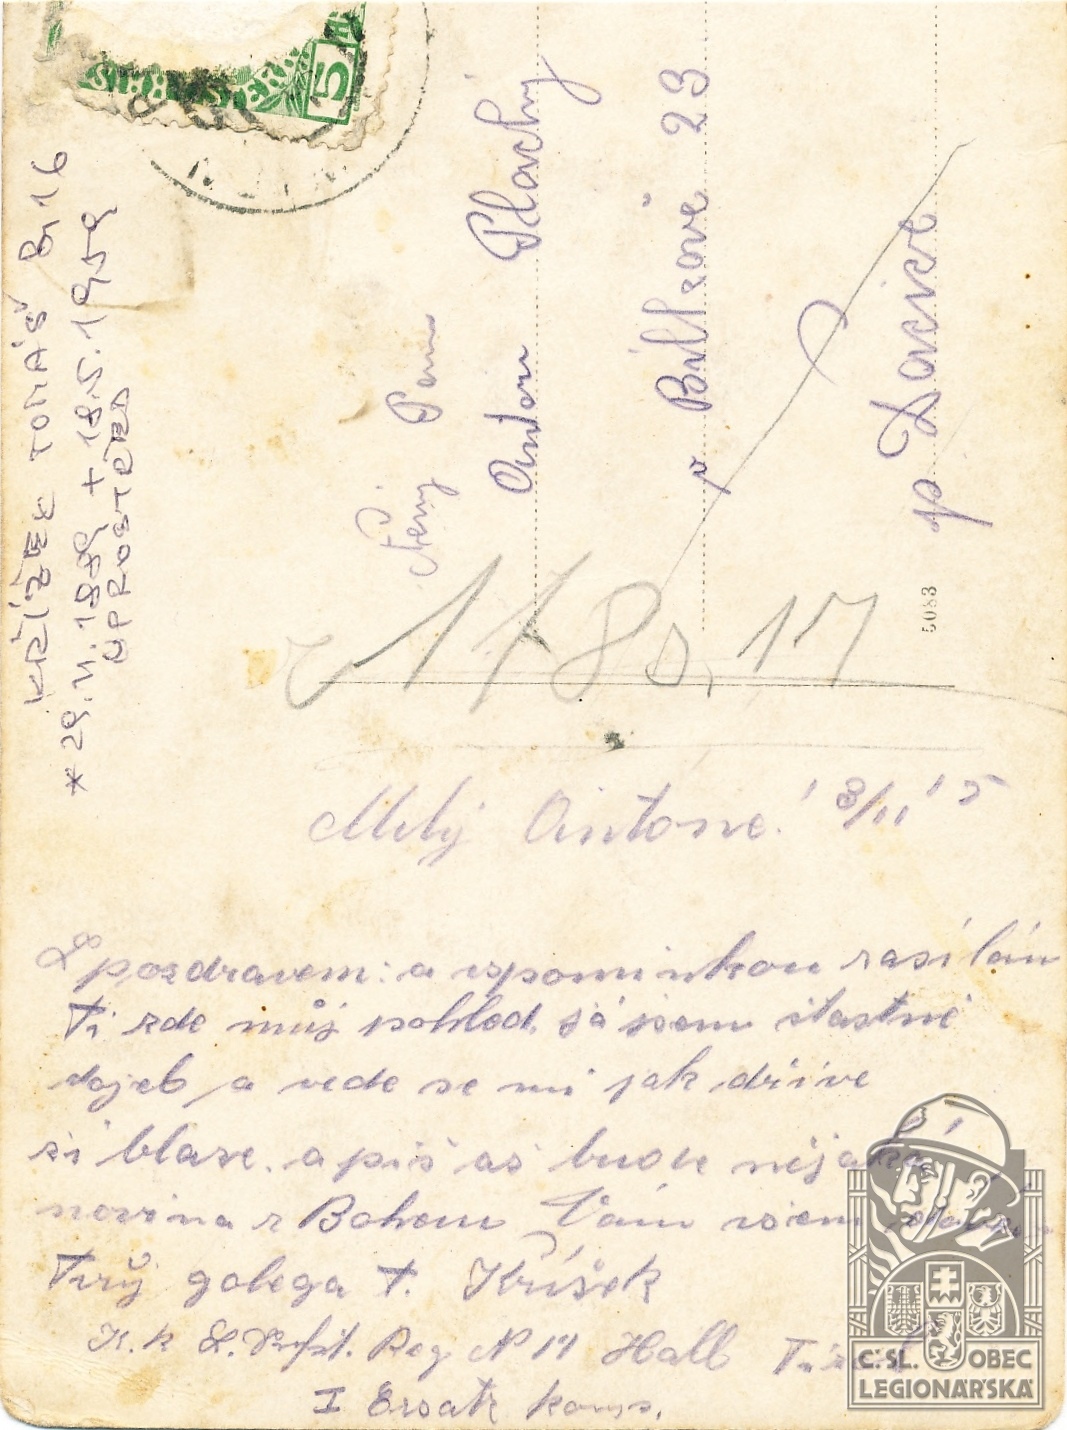 KŘÍŽEK TOMÁŠ 8/16
* 29.11.1889 + 18.5.1959
UPROSTŘED
5
Pan
Anton Plachý
v Bilkově 23
p Dačice
5083
Milý Antone! 13/11 15
S pozdravem: a vspomínkou zasílám
Ti zde můj pohled. já jsem štastně
dojeb a vede se mi jak dříve
si blaze. a piš aš bude nějaká
novina z Bohem Vám všem
Tvůj golega T. Křížek
K. k Reg N 14 Hall
I Ersatz komp.
ČSL. OBEC
LEGIONÁŘSKÁ